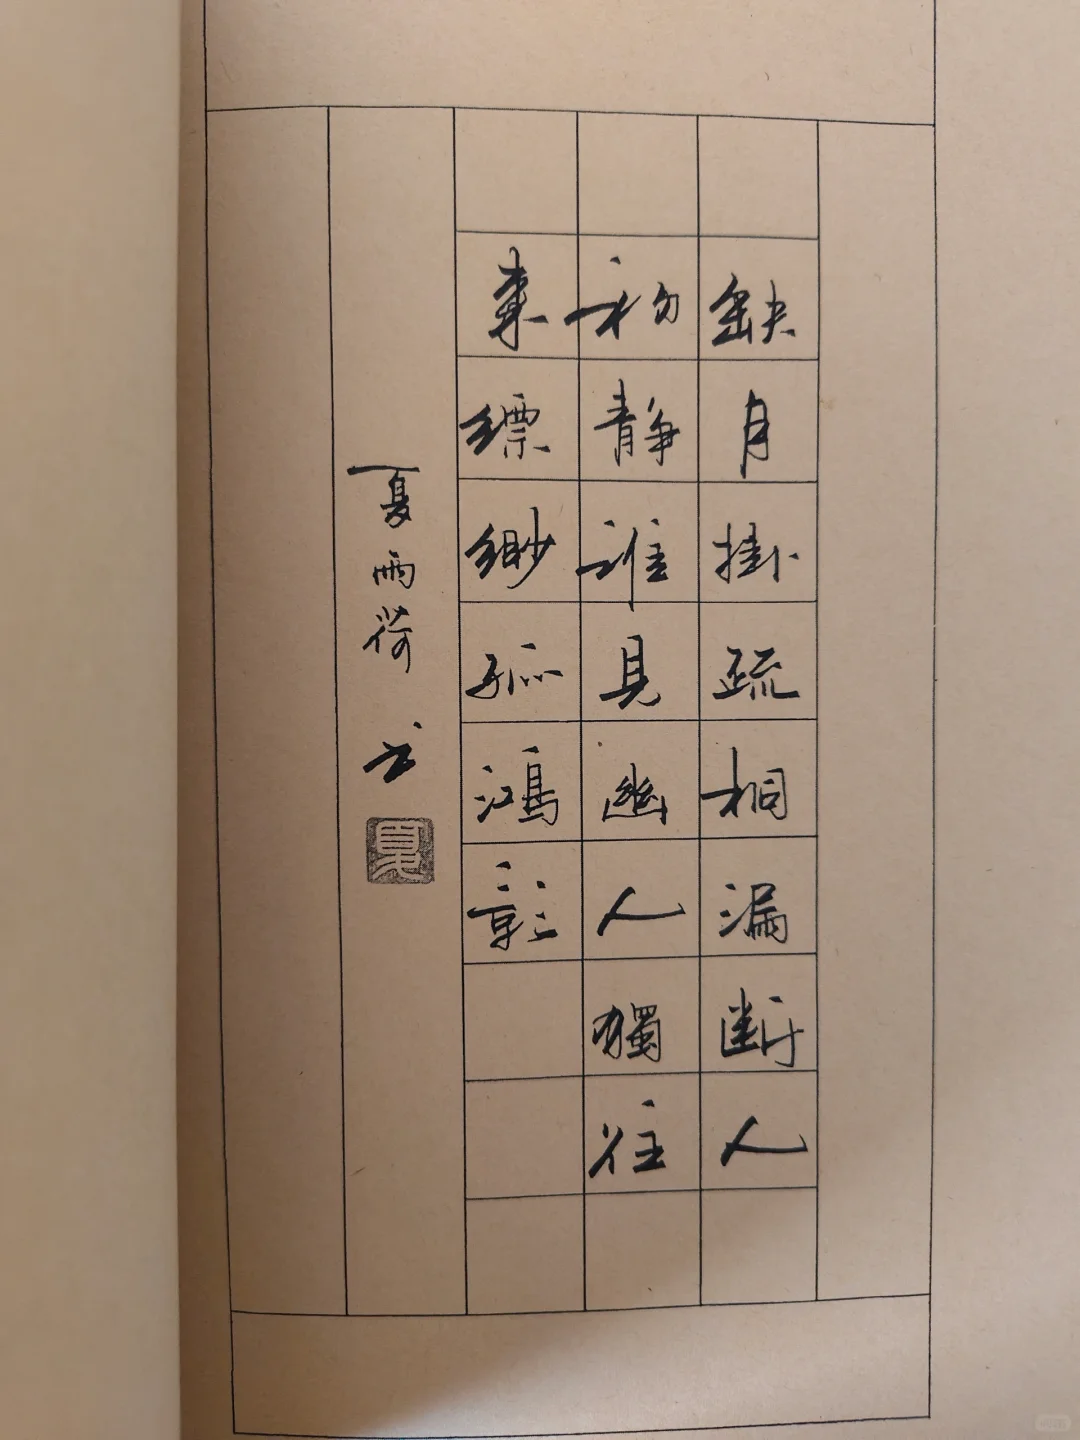 缺月掛疏桐漏断人
初静誰見幽人獨往
來縹緲孤鴻影
夏雨荷 书
夏